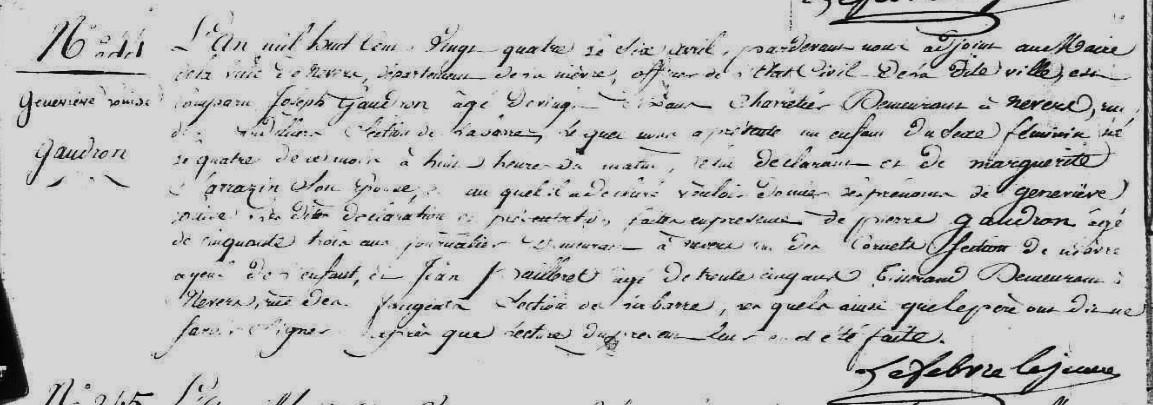 L'An mil huit cent vingt quatre le six avril, pardevant nous adjoint au Maire
de la ville de Nevers, département de la nièvre, officier de l'Etat Civil de la dite ville, est
comparu Joseph Gaudron âgé de vingt ans Charretier Demeurant à nevers, rue
Section de la barre, lequel nous a présenté un enfant du sexe féminin né
le quatre de ce mois à huit heures du matin, de lui déclarant et de marguerite
Sarrazin Son Epouse, auquel il a déclaré vouloir donner les prénoms de geneviève
Louise les dites déclaration et présentation faites en présence de pierre gaudron âgé
de cinquante trois ans journalier Demeurant à nevers rue des Section de nièvre
ayeul de l'enfant, et Jean âgé de trente cinq ans Demeurant à
Nevers, rue des Section de la barre, lesquels ainsi que le père ont dit ne
savoir Signer après que lecture du présent leur en a été faite.
Lefebvre lejeune
N°
Geneviève Louise
gaudron
N° 245
L'An mil